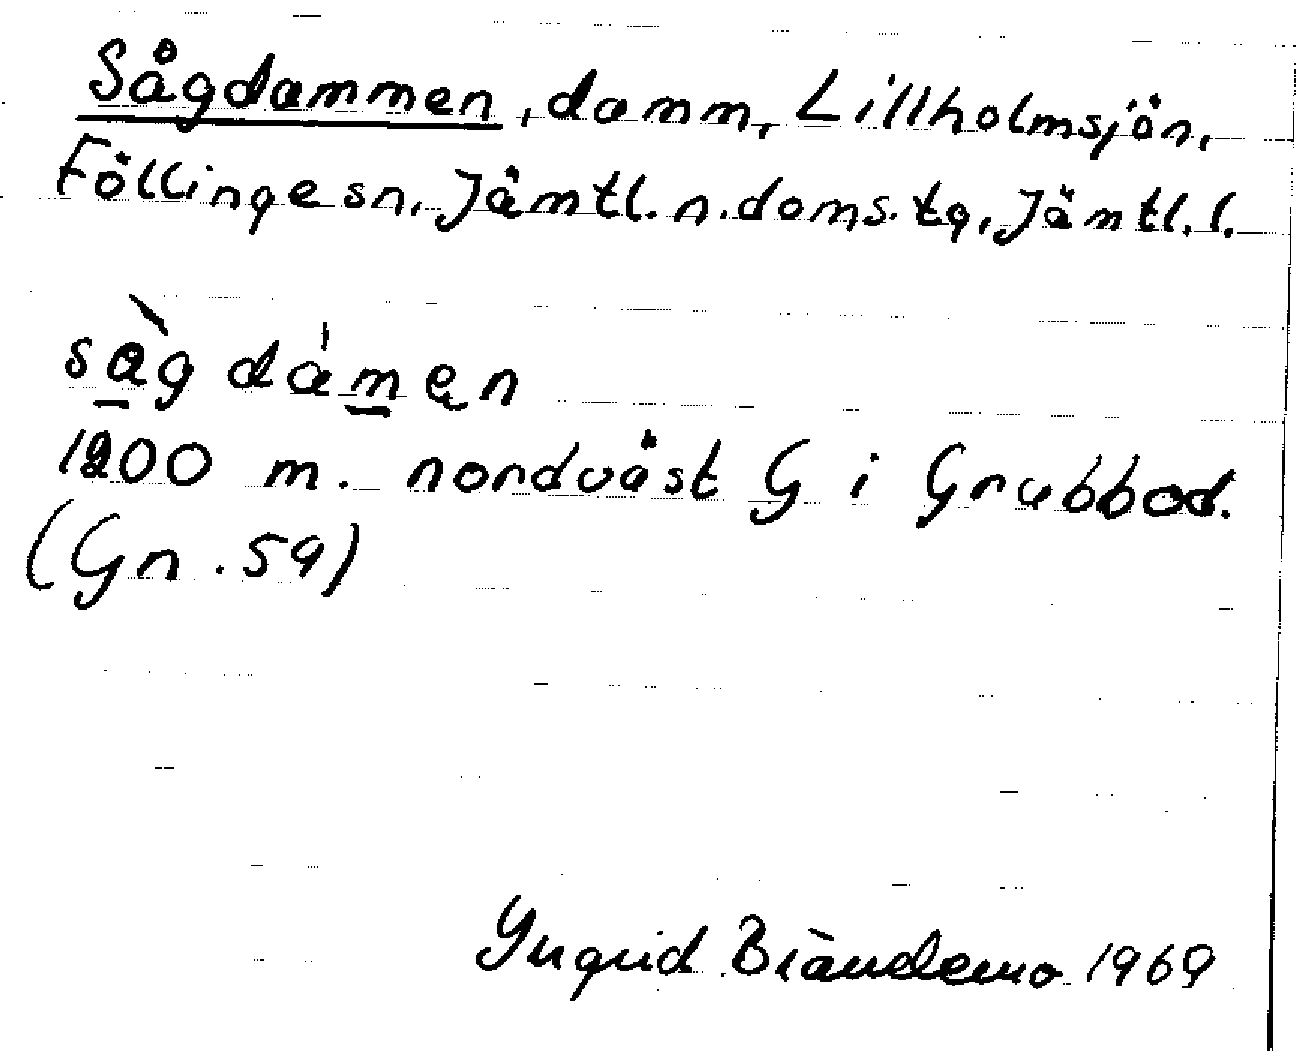 Sågdammen, damm, Lillholmsjön,
Föllinge sn, Jämtl. n. doms. tg, Jämtl. l.
sàg dámen
1200 m. nordväst G i Grubbod.
(Gn. 59)
Yngrid Brändemo 1969